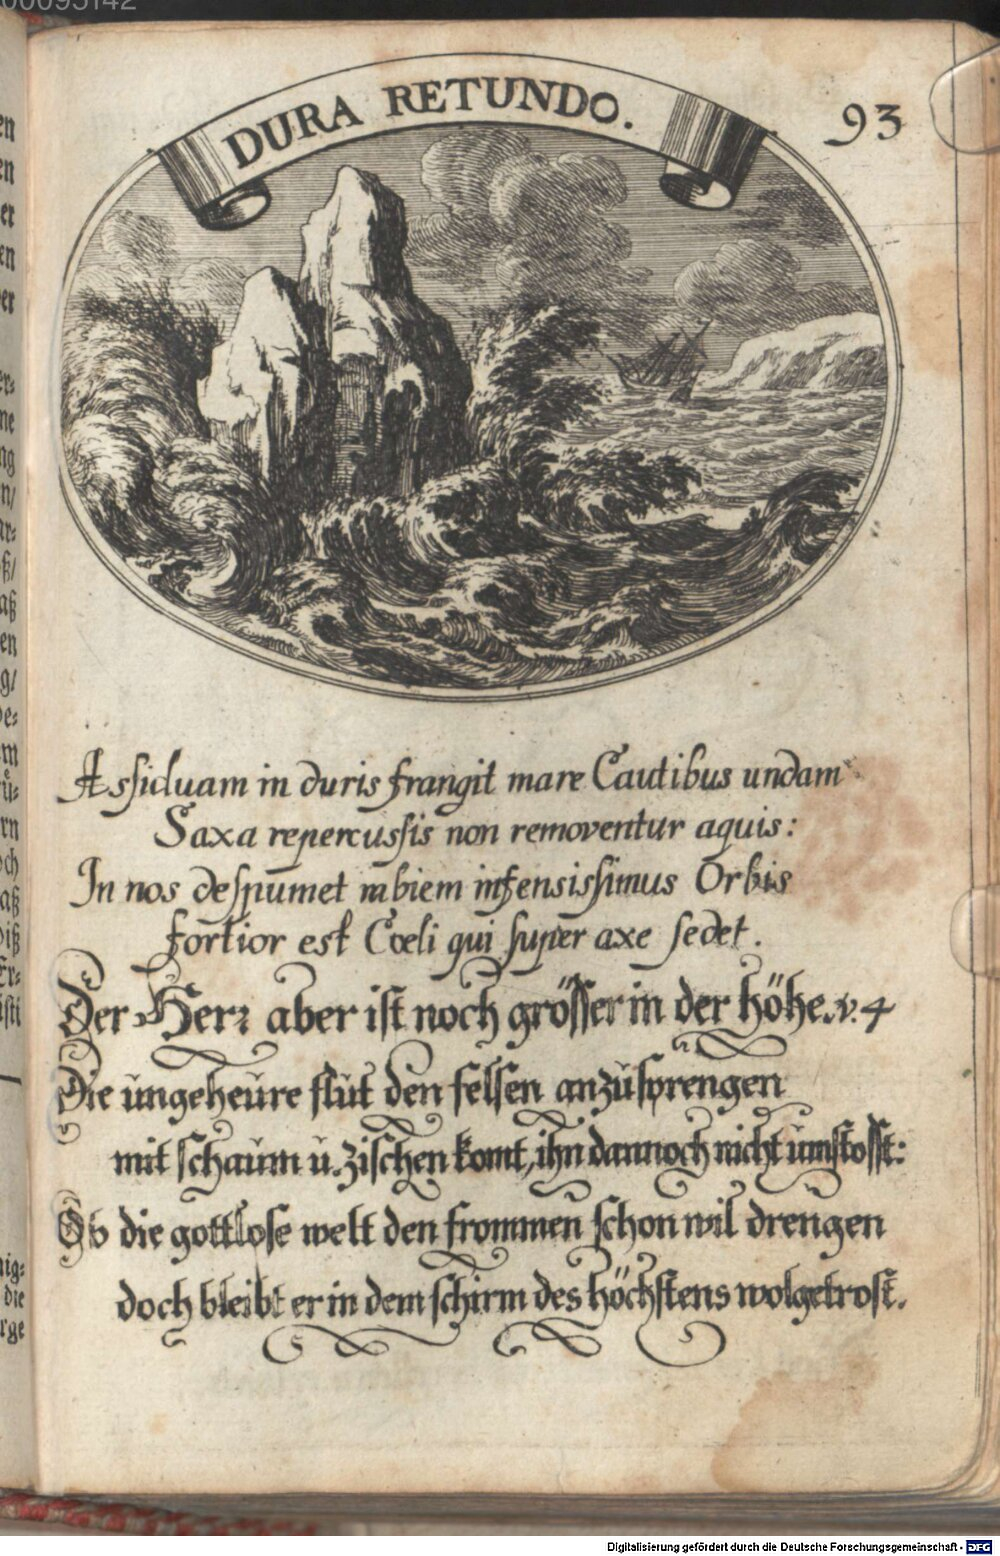 00095142
DURA RETUNDO.
93
Assiduam in duris frangit mare Cautibus undam
Saxa repercussis non removentur aquis:
In nos despumet rabiem infensissimus Orbis
fortior est Cœli qui super axe sedet.
Der Herr aber ist noch grösser in der höhe. v. 4
Die ungeheure flut den felsen anzusprengen
mit schaum u. zischen komt, ihn dannoch nicht umstosst:
Ob die gottlose welt den frommen schon wil drengen
doch bleibt er in dem schirm des höchstens wolgetrost.
Digitalisierung gefördert durch die Deutsche Forschungsgemeinschaft - DFG